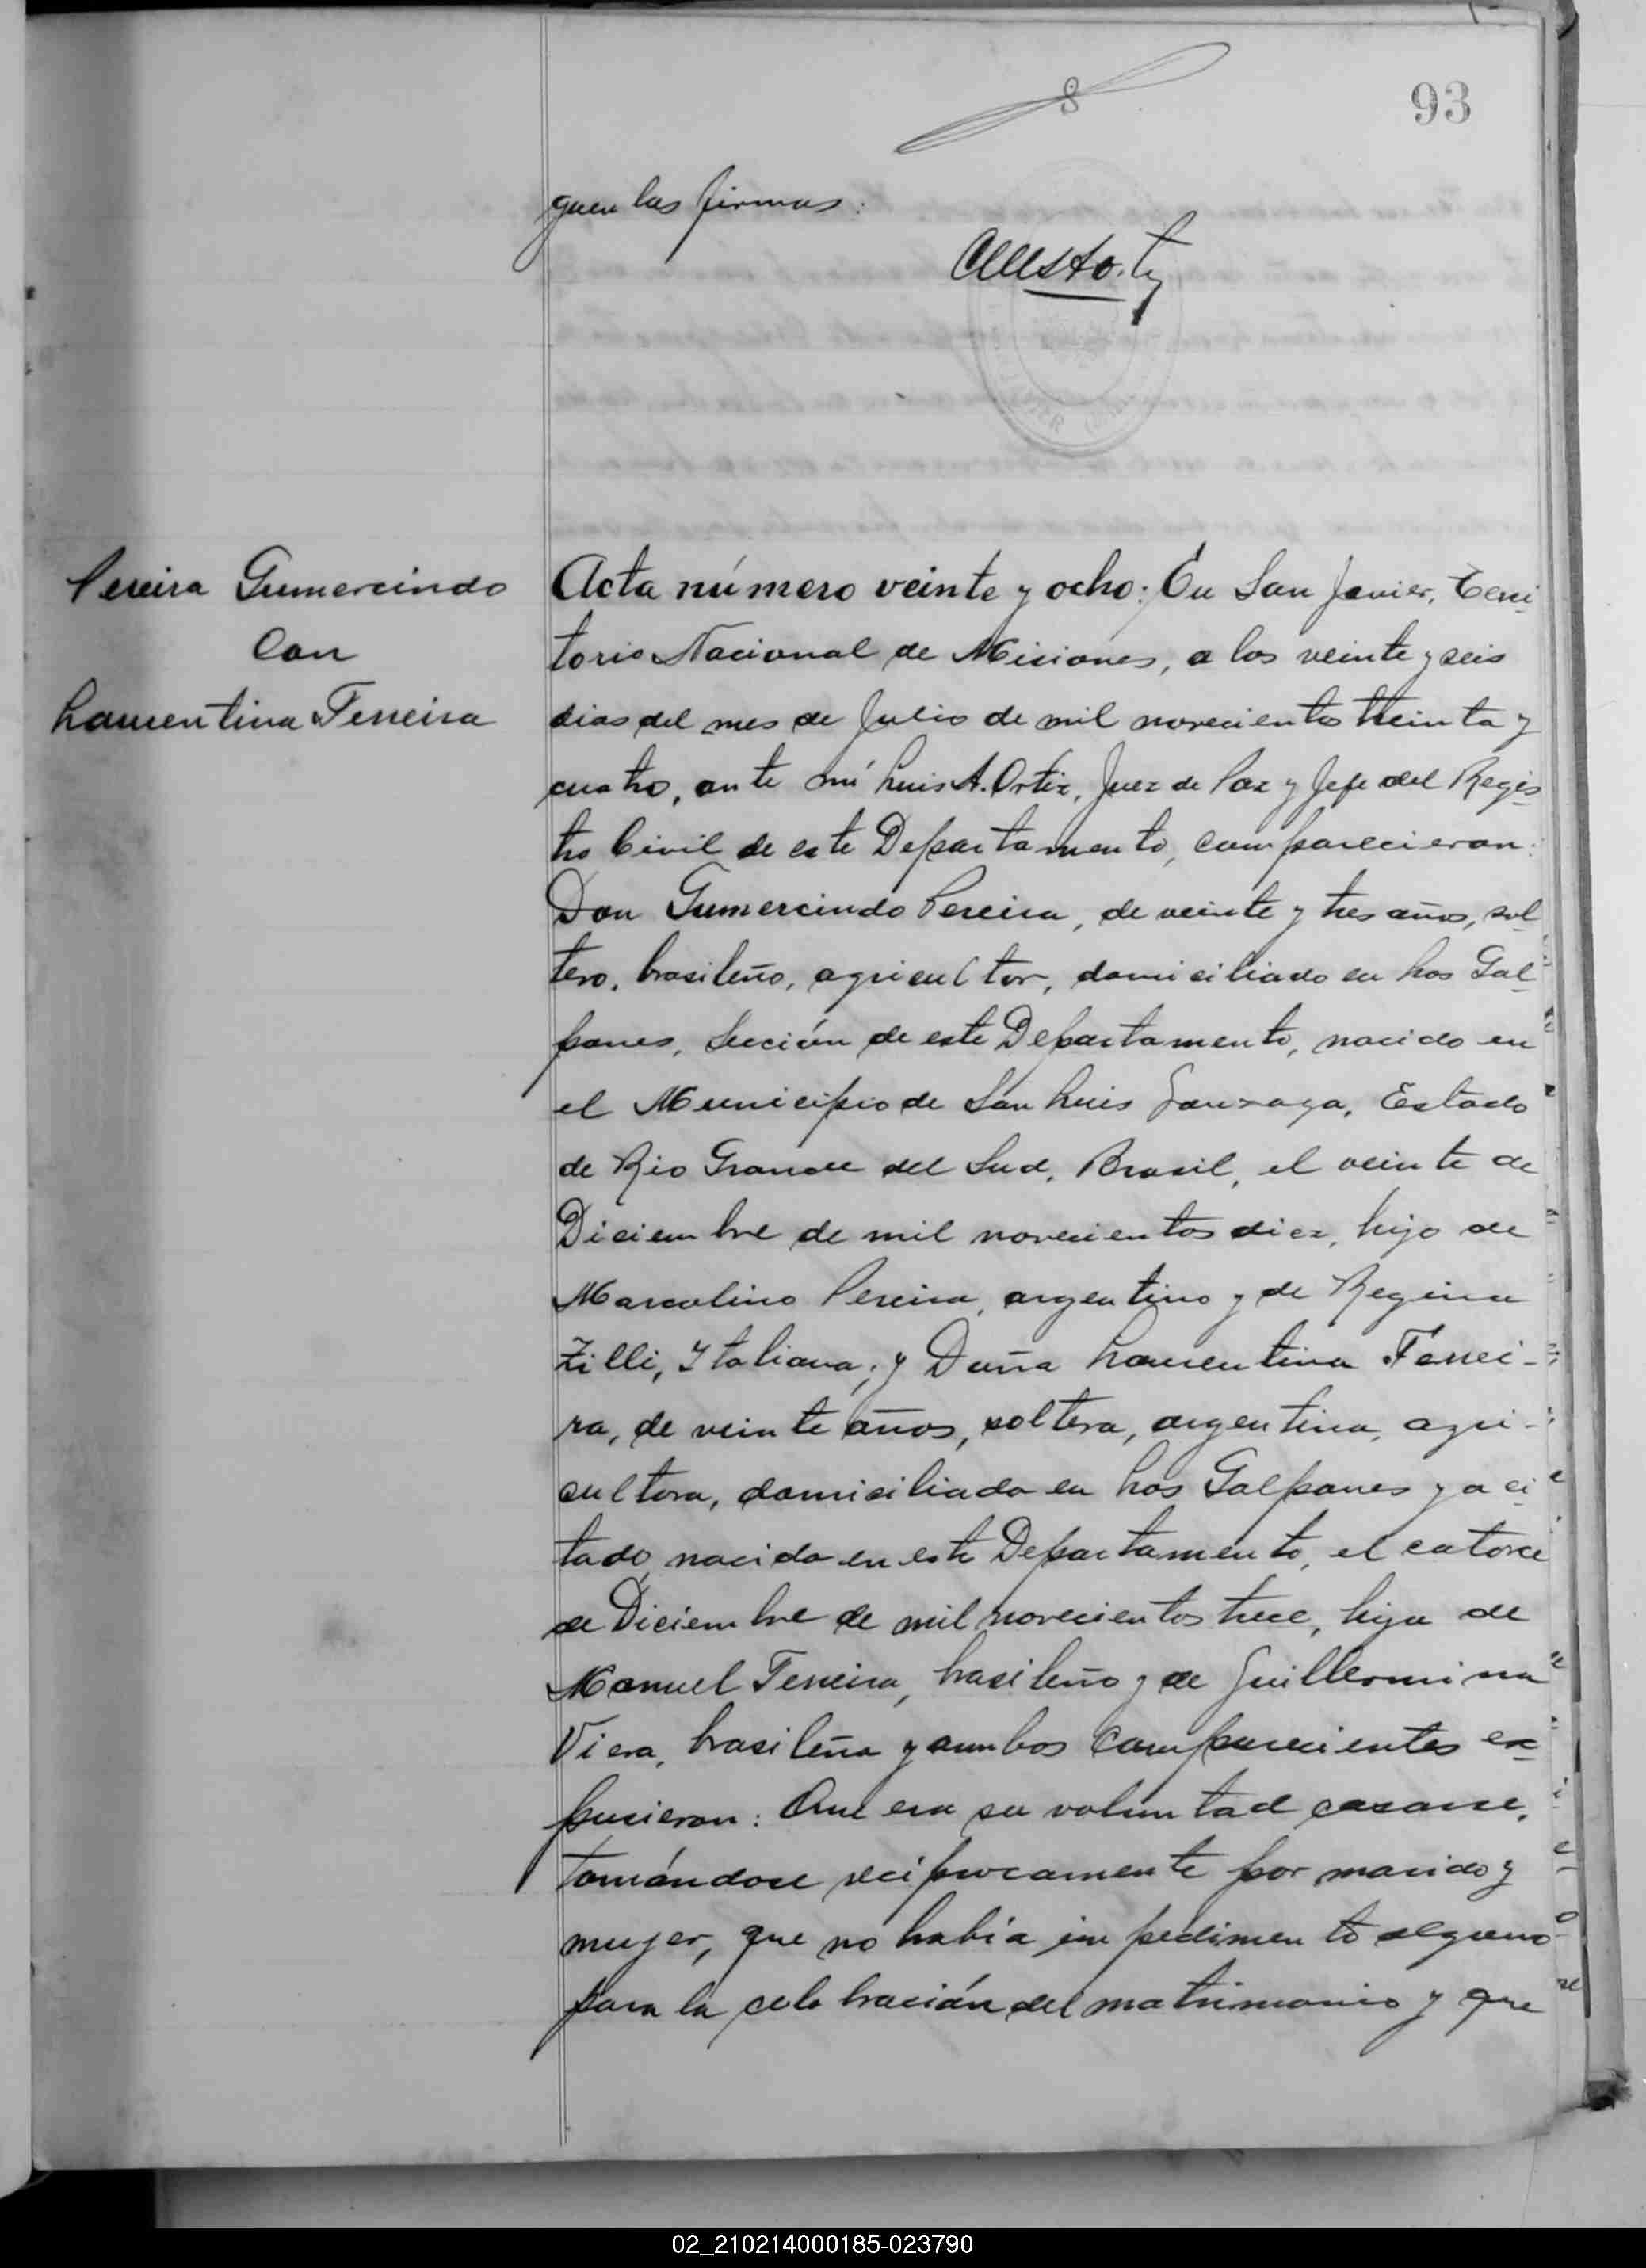 93
guen las firmas:
Pereira Gumercindo
Con
Laurentina Ferreira
Acta número veinte y ocho: En San Javier, Terri
torio Nacional de Misiones, a los veinte y seis
dias del mes de Julio de mil novecientos treinta y
cuatro, ante mí Luis A. Ortiz, Juez de Paz y Jefe del Regis
tro Civil de este Departamento, comparecieron:
Don Gumercindo Pereira, de veinte y tres años, sol
tero, brasileño, agricultor, domiciliado en Los Gal
pones, Sección de este Departamento, nacido en
el Municipio de San Luis Gonzaga, Estado
de Rio Grande del Sud, Brasil, el veinte de
Diciembre de mil novecientos diez, hijo de
Marcolino Pereira, argentino y de Regina
Zilli, Italiana; y Doña Laurentina Ferrei-
ra, de veinte años, soltera, argentina, agri-
cultora, domiciliada en Los Galpones ya ci
tado, nacida en este Departamento, el catorce
de Diciembre de mil novecientos trece, hija de
Manuel Ferreira, brasileño y de Guillermina
Viera, brasileña y ambos comparecientes ex
pusieron: Que era su voluntad casarse,
tomándose recíprocamente por marido y
mujer, que no había impedimento alguno
para la celebración del matrimonio y que
02_210214000185-023790